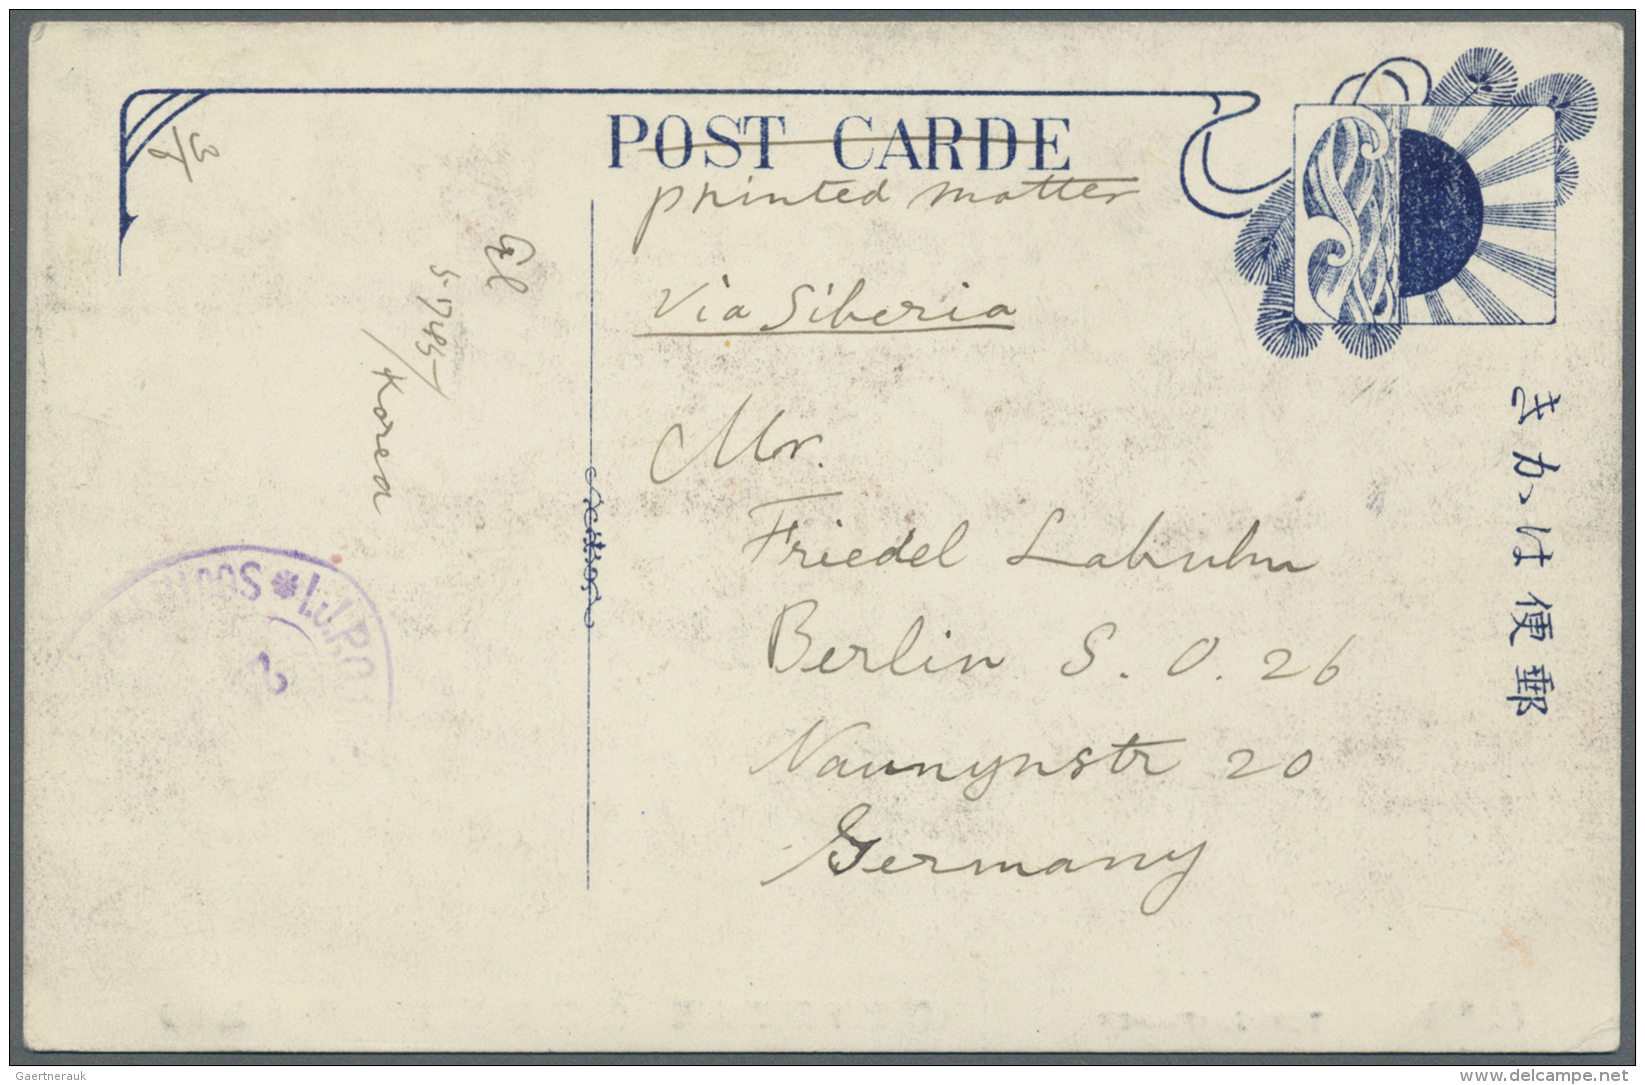 POST CARDE
printed matter
Via Siberia
Mr.
Friedel Labuhn
Berlin S. O. 26
Naunynstr 20
Germany
きかは便郵
Korea
I.J.P.O.
Gaertnerauk
www.delcampe.net